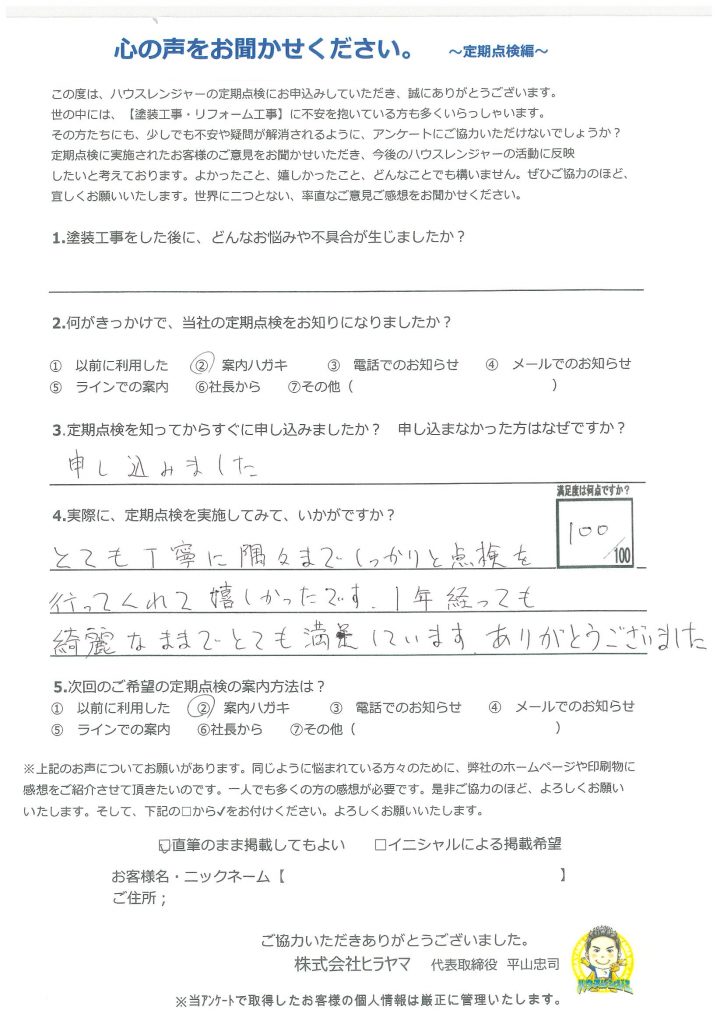 心の声をお聞かせください。 ～定期点検編～
この度は、ハウスレンジャーの定期点検にお申込みしていただき、誠にありがとうございます。
世の中には、【塗装工事・リフォーム工事】に不安を抱いている方も多くいらっしゃいます。
その方たちにも、少しでも不安や疑問が解消されるように、アンケートにご協力いただけないでしょうか？
定期点検に実施されたお客様のご意見をお聞かせいただき、今後のハウスレンジャーの活動に反映
したいと考えております。よかったこと、嬉しかったこと、どんなことでも構いません。ぜひご協力のほど、
宜しくお願いいたします。世界に二つとない、率直なご意見ご感想をお聞かせください。
1.塗装工事をした後に、どんなお悩みや不具合が生じましたか？
2.何がきっかけで、当社の定期点検をお知りになりましたか？
① 以前に利用した ② 案内ハガキ ③ 電話でのお知らせ ④ メールでのお知らせ
⑤ ラインでの案内 ⑥社長から ⑦その他（ ）
3.定期点検を知ってからすぐに申し込みましたか？ 申し込まなかった方はなぜですか？
申し込みました
満足度は何点ですか？
4.実際に、定期点検を実施してみて、いかがですか？
100/100
とても丁寧に隅々までしっかりと点検を
行ってくれて嬉しかったです。1年経っても
綺麗なままでとても満足しています。ありがとうございました
5.次回のご希望の定期点検の案内方法は？
① 以前に利用した ② 案内ハガキ ③ 電話でのお知らせ ④ メールでのお知らせ
⑤ ラインでの案内 ⑥社長から ⑦その他（ ）
※上記のお声についてお願いがあります。同じように悩まれている方々のために、弊社のホームページや印刷物に
感想をご紹介させて頂きたいのです。一人でも多くの方の感想が必要です。是非ご協力のほど、よろしくお願い
いたします。そして、下記の□から✓をお付けください。よろしくお願いいたします。
☑直筆のまま掲載してもよい □イニシャルによる掲載希望
お客様名・ニックネーム【 】
ご住所；
ご協力いただきありがとうございました。
株式会社ヒラヤマ 代表取締役 平山忠司
ハウスレンジャー
※当アンケートで取得したお客様の個人情報は厳正に管理いたします。